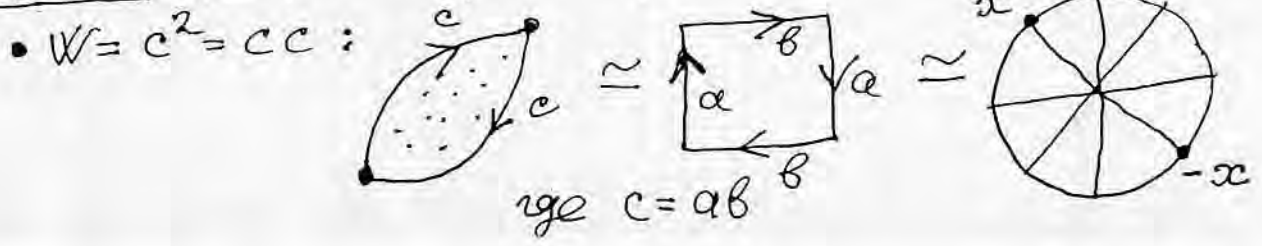 • W = c² = cc : c c ≃ a b a b ≃ x -x
где c = ab